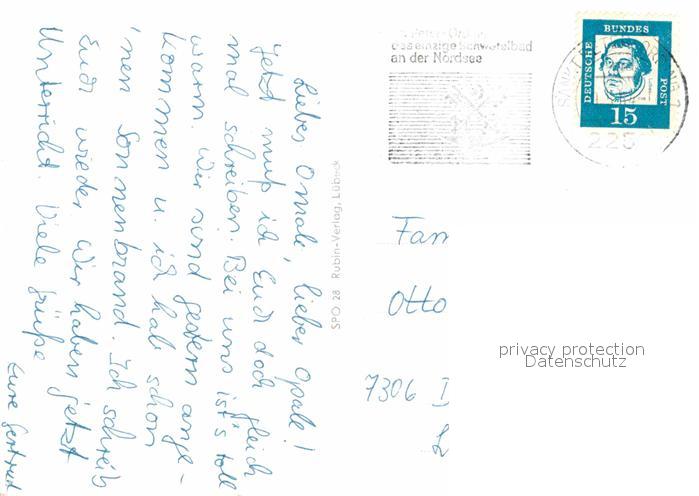 Lieber Omale, lieber Opale!
Jetzt muß ich Euch doch gleich
mal schreiben. Bei uns ist's toll
warm. Wir sind gestern ange-
kommen u. ich hab schon
'nen Sonnenbrand. Ich schreib
Euch wieder. Wir haben jetzt
Unterricht. Viele Grüße
Eure Gertrud
SPO 28 Rubin-Verlag, Lübeck
das einzige Schwefelbad
an der Nordsee
DEUTSCHE BUNDES POST
15
Fam
Otto
privacy protection
Datenschutz
7306 I